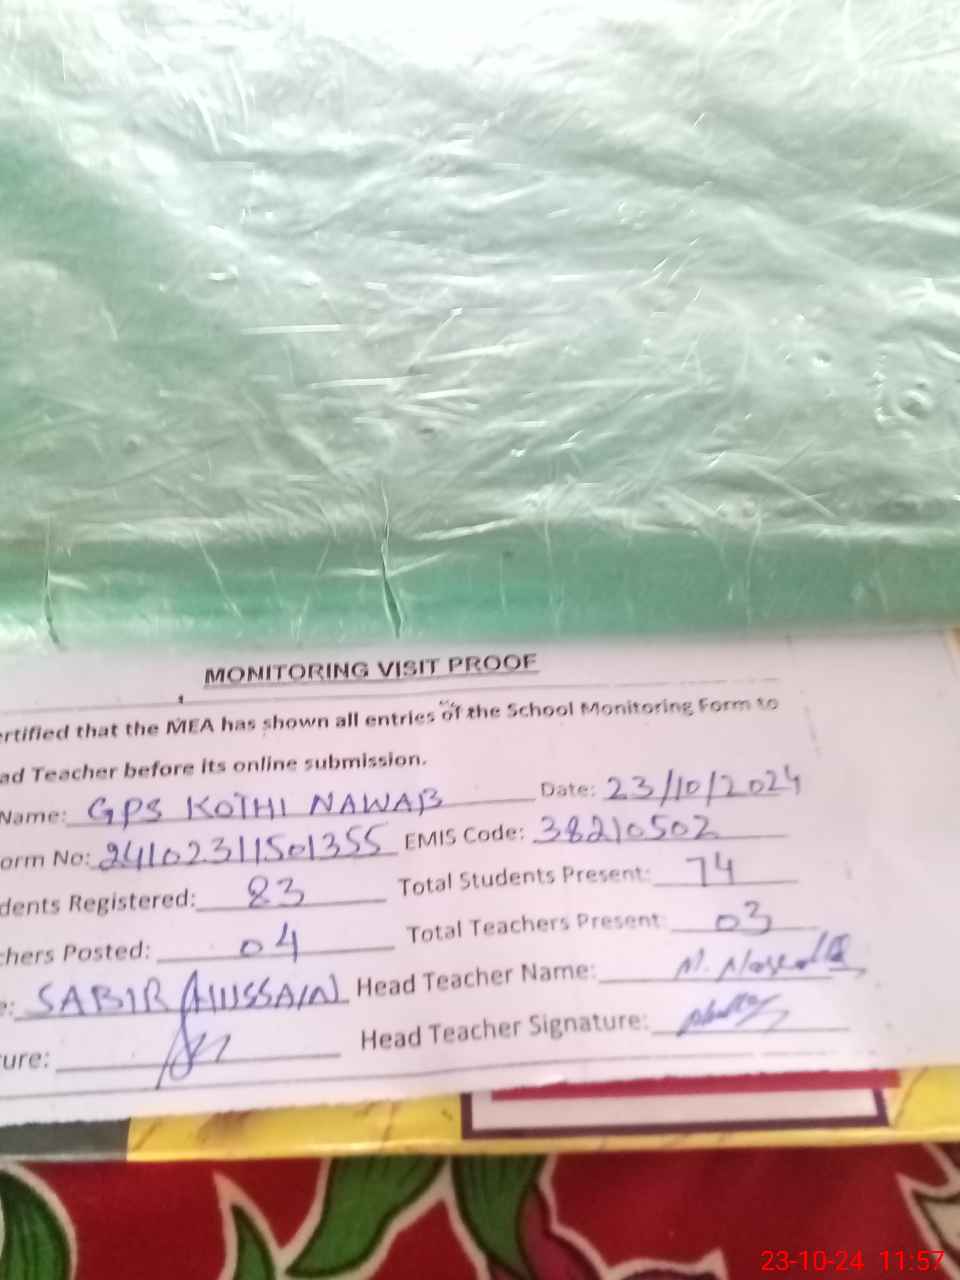 MONITORING VISIT PROOF
ertified that the MEA has shown all entries of the School Monitoring Form to
ad Teacher before its online submission.
Name: GPS KOTHI NAWAB Date: 23/10/2024
orm No: 24102311501355 EMIS Code: 38210502
dents Registered: 83 Total Students Present: 74
chers Posted: 04 Total Teachers Present: 03
e: SABIR HUSSAIN Head Teacher Name: M.
ure: Head Teacher Signature:
23-10-24 11:57